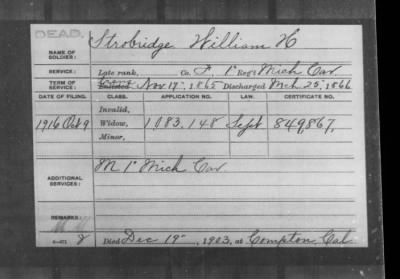 DEAD.
NAME OF SOLDIER: Strobridge William H
SERVICE: Late rank, Co. F, 1" Reg't Mich Cav
TERM OF SERVICE: Enlisted Nov. 17", 1865 Discharged Mch 25", 1866
DATE OF FILING. CLASS. APPLICATION NO. LAW. CERTIFICATE NO.
Invalid,
1916 Oct 9 Widow, 1,083,148 Sept 849,867.
Minor,
ADDITIONAL SERVICES: M 1" Mich Cav
REMARKS:
Died Dec 19", 1903, at Compton, Cal